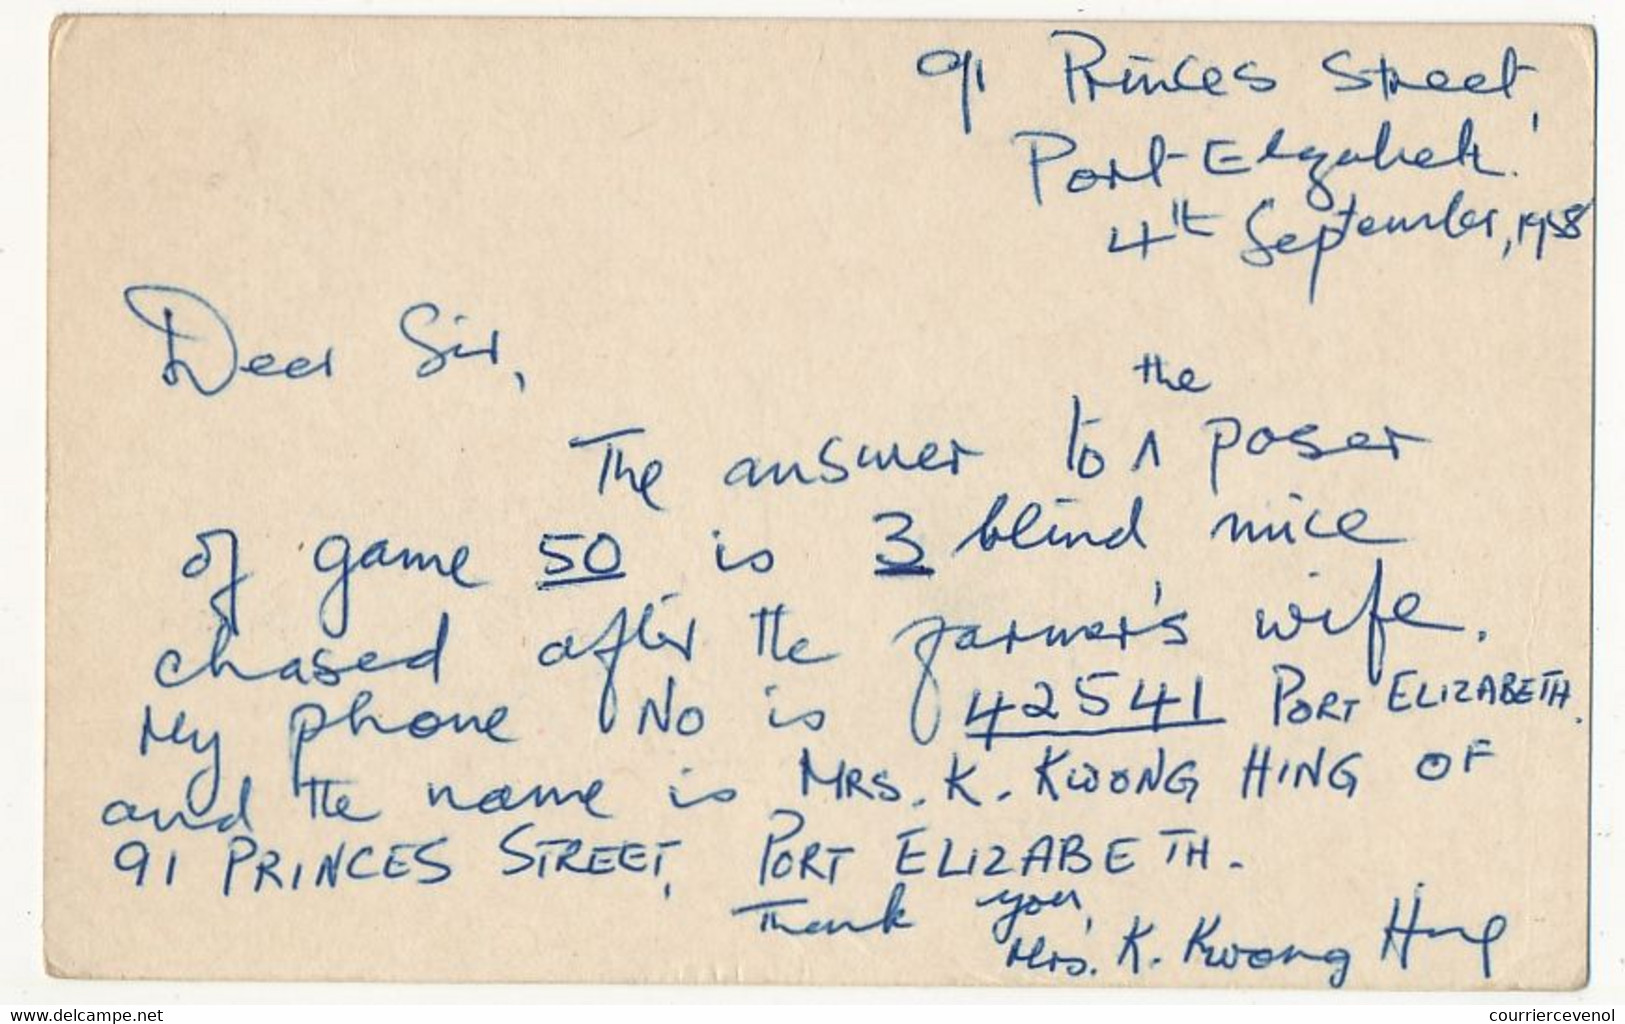 91 Princes Street,
Port Elizabeth.
4th September, 1958
Dear Sir,
the
The answer to ∧ poser
of game 50 is 3 blind mice
chased after the farmer's wife.
My phone No is 42541 PORT ELIZABETH.
and the name is MRS. K. KWONG HING OF
91 PRINCES STREET, PORT ELIZABETH.
Thank you,
Mrs. K. Kwong Hing
www.delcampe.net
courriercevenol